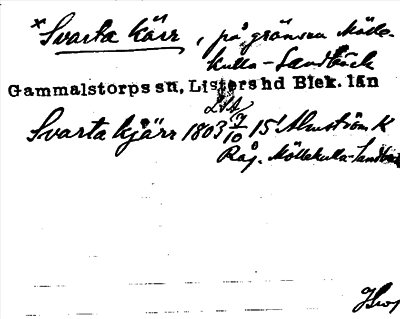 *Svarta kärr, på gränsen Mölle-
kulla-Sandbäck
Gammalstorps sn, Listers hd Blek. län
LSA
Svarta kjärr 1803 7/10 15' Almström K
Råg. Möllekulla-Sandbäck